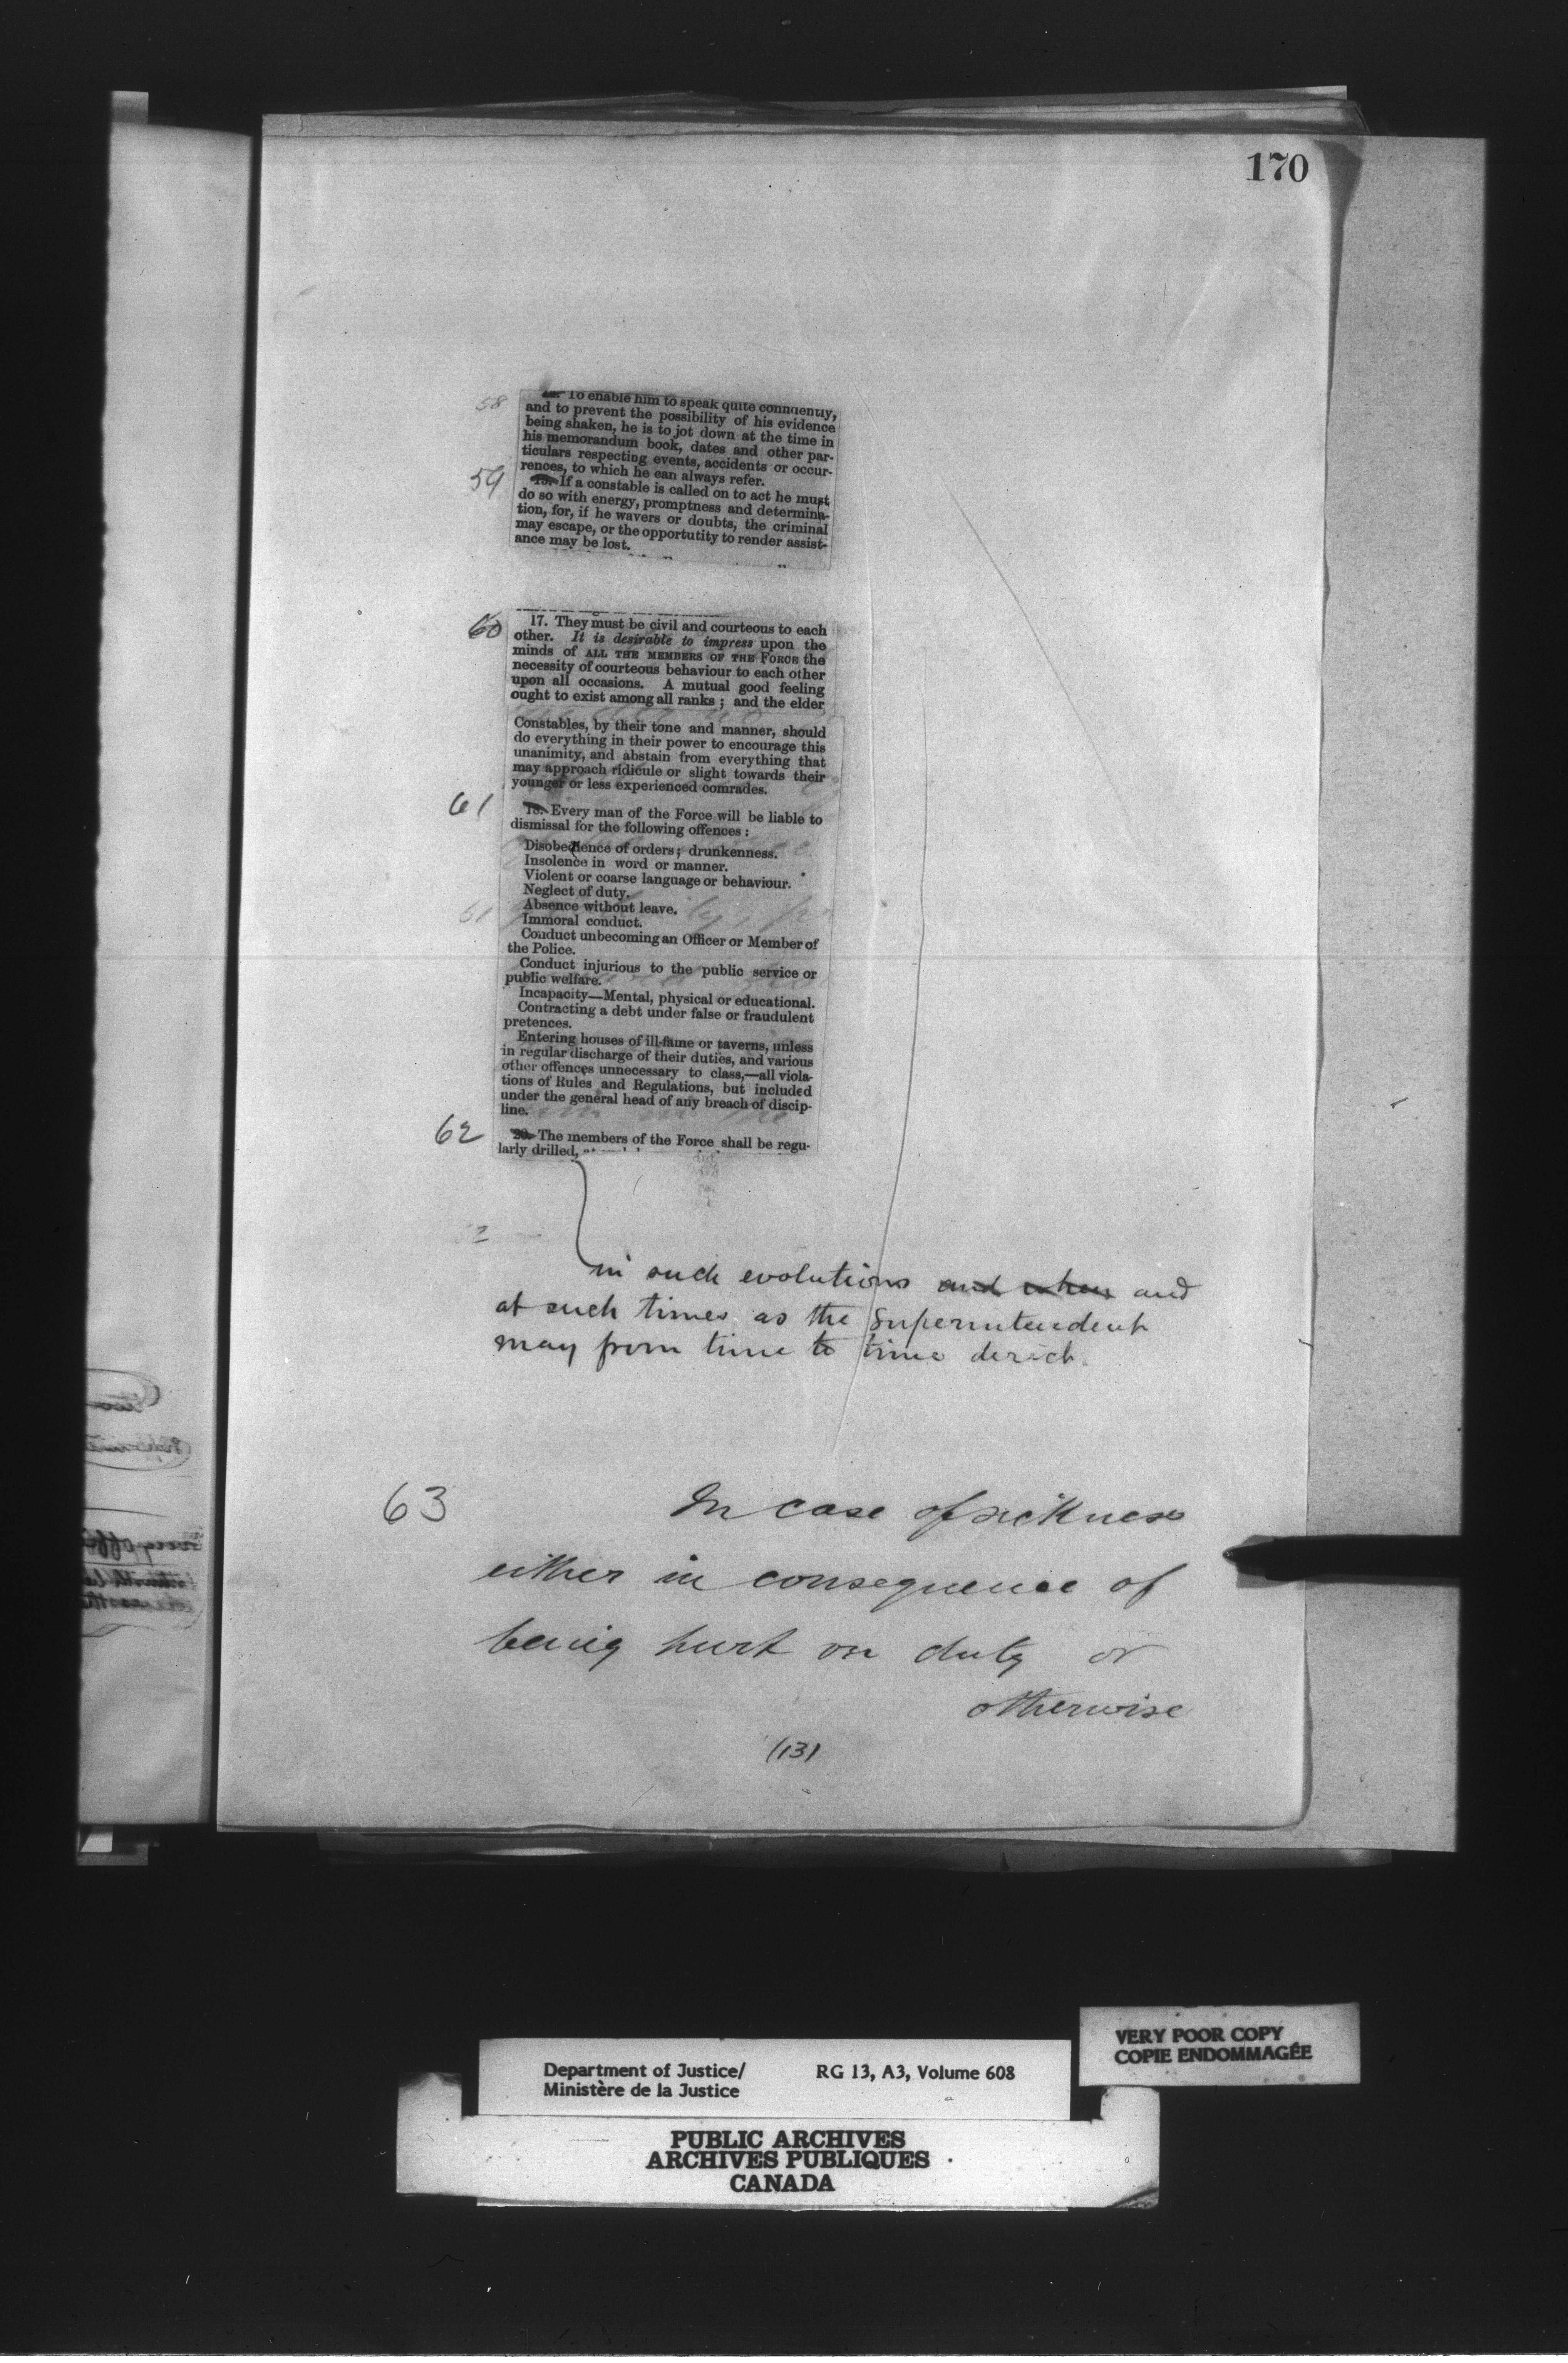 170
58 To enable him to speak quite confidently,
and to prevent the possibility of his evidence
being shaken, he is to jot down at the time in
his memorandum book, dates and other par-
ticulars respecting events, accidents or occur-
rences, to which he can always refer.
59 15. If a constable is called on to act he must
do so with energy, promptness and determina-
tion, for, if he wavers or doubts, the criminal
may escape, or the opportutity to render assist-
ance may be lost.
60 17. They must be civil and courteous to each
other. It is desirable to impress upon the
minds of ALL THE MEMBERS OF THE FORCE the
necessity of courteous behaviour to each other
upon all occasions. A mutual good feeling
ought to exist among all ranks; and the elder
Constables, by their tone and manner, should
do everything in their power to encourage this
unanimity, and abstain from everything that
may approach ridicule or slight towards their
younger or less experienced comrades.
61 18. Every man of the Force will be liable to
dismissal for the following offences:
Disobedience of orders; drunkenness.
Insolence in word or manner.
Violent or coarse language or behaviour.
Neglect of duty.
Absence without leave.
61 Immoral conduct.
Conduct unbecoming an Officer or Member of
the Police.
Conduct injurious to the public service or
public welfare.
Incapacity—Mental, physical or educational.
Contracting a debt under false or fraudulent
pretences.
Entering houses of ill-fame or taverns, unless
in regular discharge of their duties, and various
other offences unnecessary to class,—all viola-
tions of Rules and Regulations, but included
under the general head of any breach of discip-
line.
62 20. The members of the Force shall be regu-
larly drilled,
in such evolutions and when and
at such times as the Superintendent
may from time to time derect.
63 In case of sickness
either in consequence of
being hurt on duty or
otherwise
(13)
VERY POOR COPY
COPIE ENDOMMAGÉE
Department of Justice/ RG 13, A3, Volume 608
Ministère de la Justice
PUBLIC ARCHIVES
ARCHIVES PUBLIQUES
CANADA